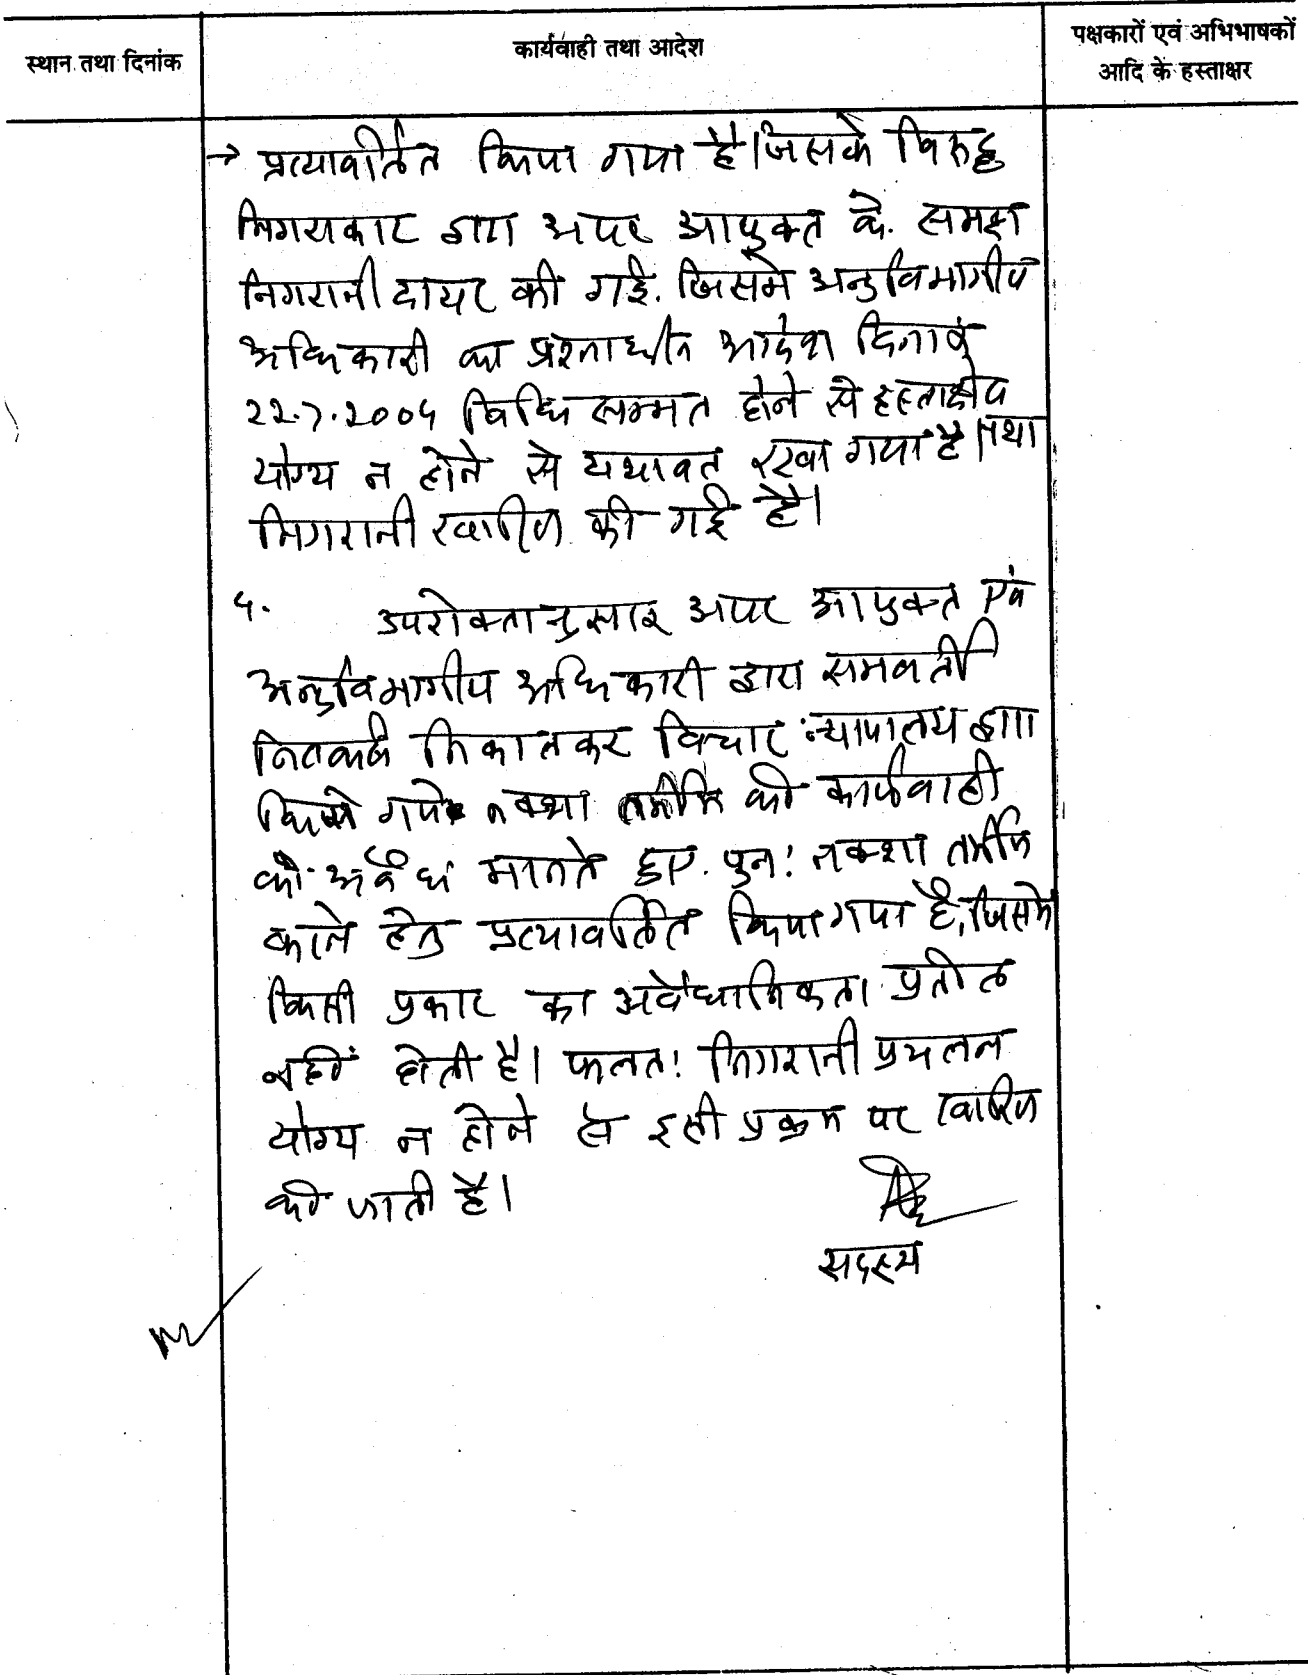 स्थान तथा दिनांक
कार्यवाही तथा आदेश
पक्षकारों एवं अभिभाषकों
आदि के हस्ताक्षर
→ प्रत्यावर्तित किया गया है। जिसके विरुद्ध
निगराकार द्वारा अपर आयुक्त के समक्ष
निगरानी दायर की गई. जिसमें अनुविभागीय
अधिकारी का प्रश्नाधीन आदेश दिनांक
22.7.2004 विधि सम्मत होने से हस्तक्षेप
योग्य न होने से यथावत रखा गया है। तथा
निगरानी खारिज की गई है।
5. उपरोक्तानुसार अपर आयुक्त एवं
अनुविभागीय अधिकारी द्वारा समवर्ती
निष्कर्ष निकालकर विचार न्यायालय द्वारा
किये गये नक्शा तरमीम की कार्यवाही
को अवैध मानते हुए. पुनः नक्शा तरमीम
करने हेतु प्रत्यावर्तित किया गया है, जिसमें
किसी प्रकार का अवैधानिकता प्रतीत
नहीं होती है। फलतः निगरानी प्रचलन
योग्य न होने से इसी प्रक्रम पर खारिज
की जाती है।
सदस्य